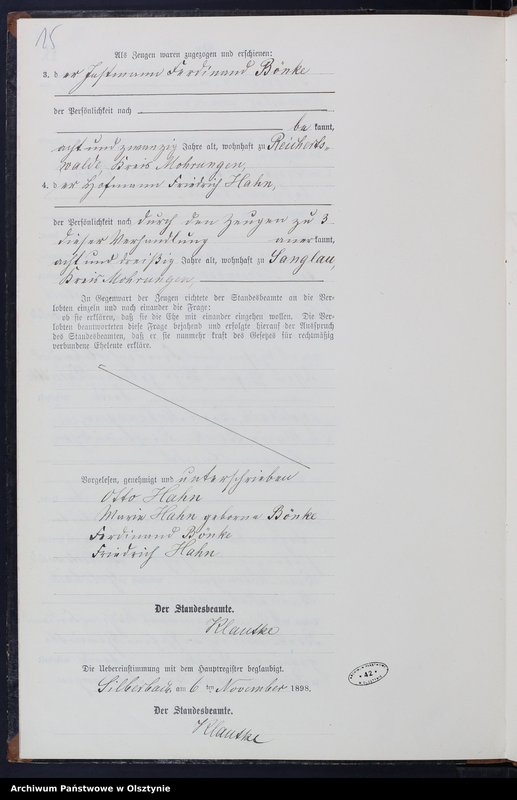 15
Als Zeugen waren zugezogen und erschienen:
3. der Instmann Ferdinand Bönke
der Persönlichkeit nach
bekannt,
acht und zwanzig Jahre alt, wohnhaft zu Reicherts-
walde, Kreis Mohrungen,
4. der Hofmann Friedrich Hahn,
der Persönlichkeit nach durch den Zeugen zu 3
dieser Verhandlung anerkannt,
acht und dreißig Jahre alt, wohnhaft zu Sanglau,
Kreis Mohrungen,
In Gegenwart der Zeugen richtete der Standesbeamte an die Ver-
lobten einzeln und nach einander die Frage:
ob sie erklären, daß sie die Ehe mit einander eingehen wollen. Die Ver-
lobten beantworteten diese Frage bejahend und erfolgte hierauf der Ausspruch
des Standesbeamten, daß er sie nunmehr kraft des Gesetzes für rechtmäßig
verbundene Eheleute erkläre.
Vorgelesen, genehmigt und unterschrieben
Otto Hahn
Marie Hahn geborne Bönke
Ferdinand Bönke
Friedrich Hahn
Der Standesbeamte.
Klautke
Die Uebereinstimmung mit dem Hauptregister beglaubigt.
Silberbach, am 6 ten November 1898.
Der Standesbeamte.
Klautke
42
Archiwum Państwowe w Olsztynie